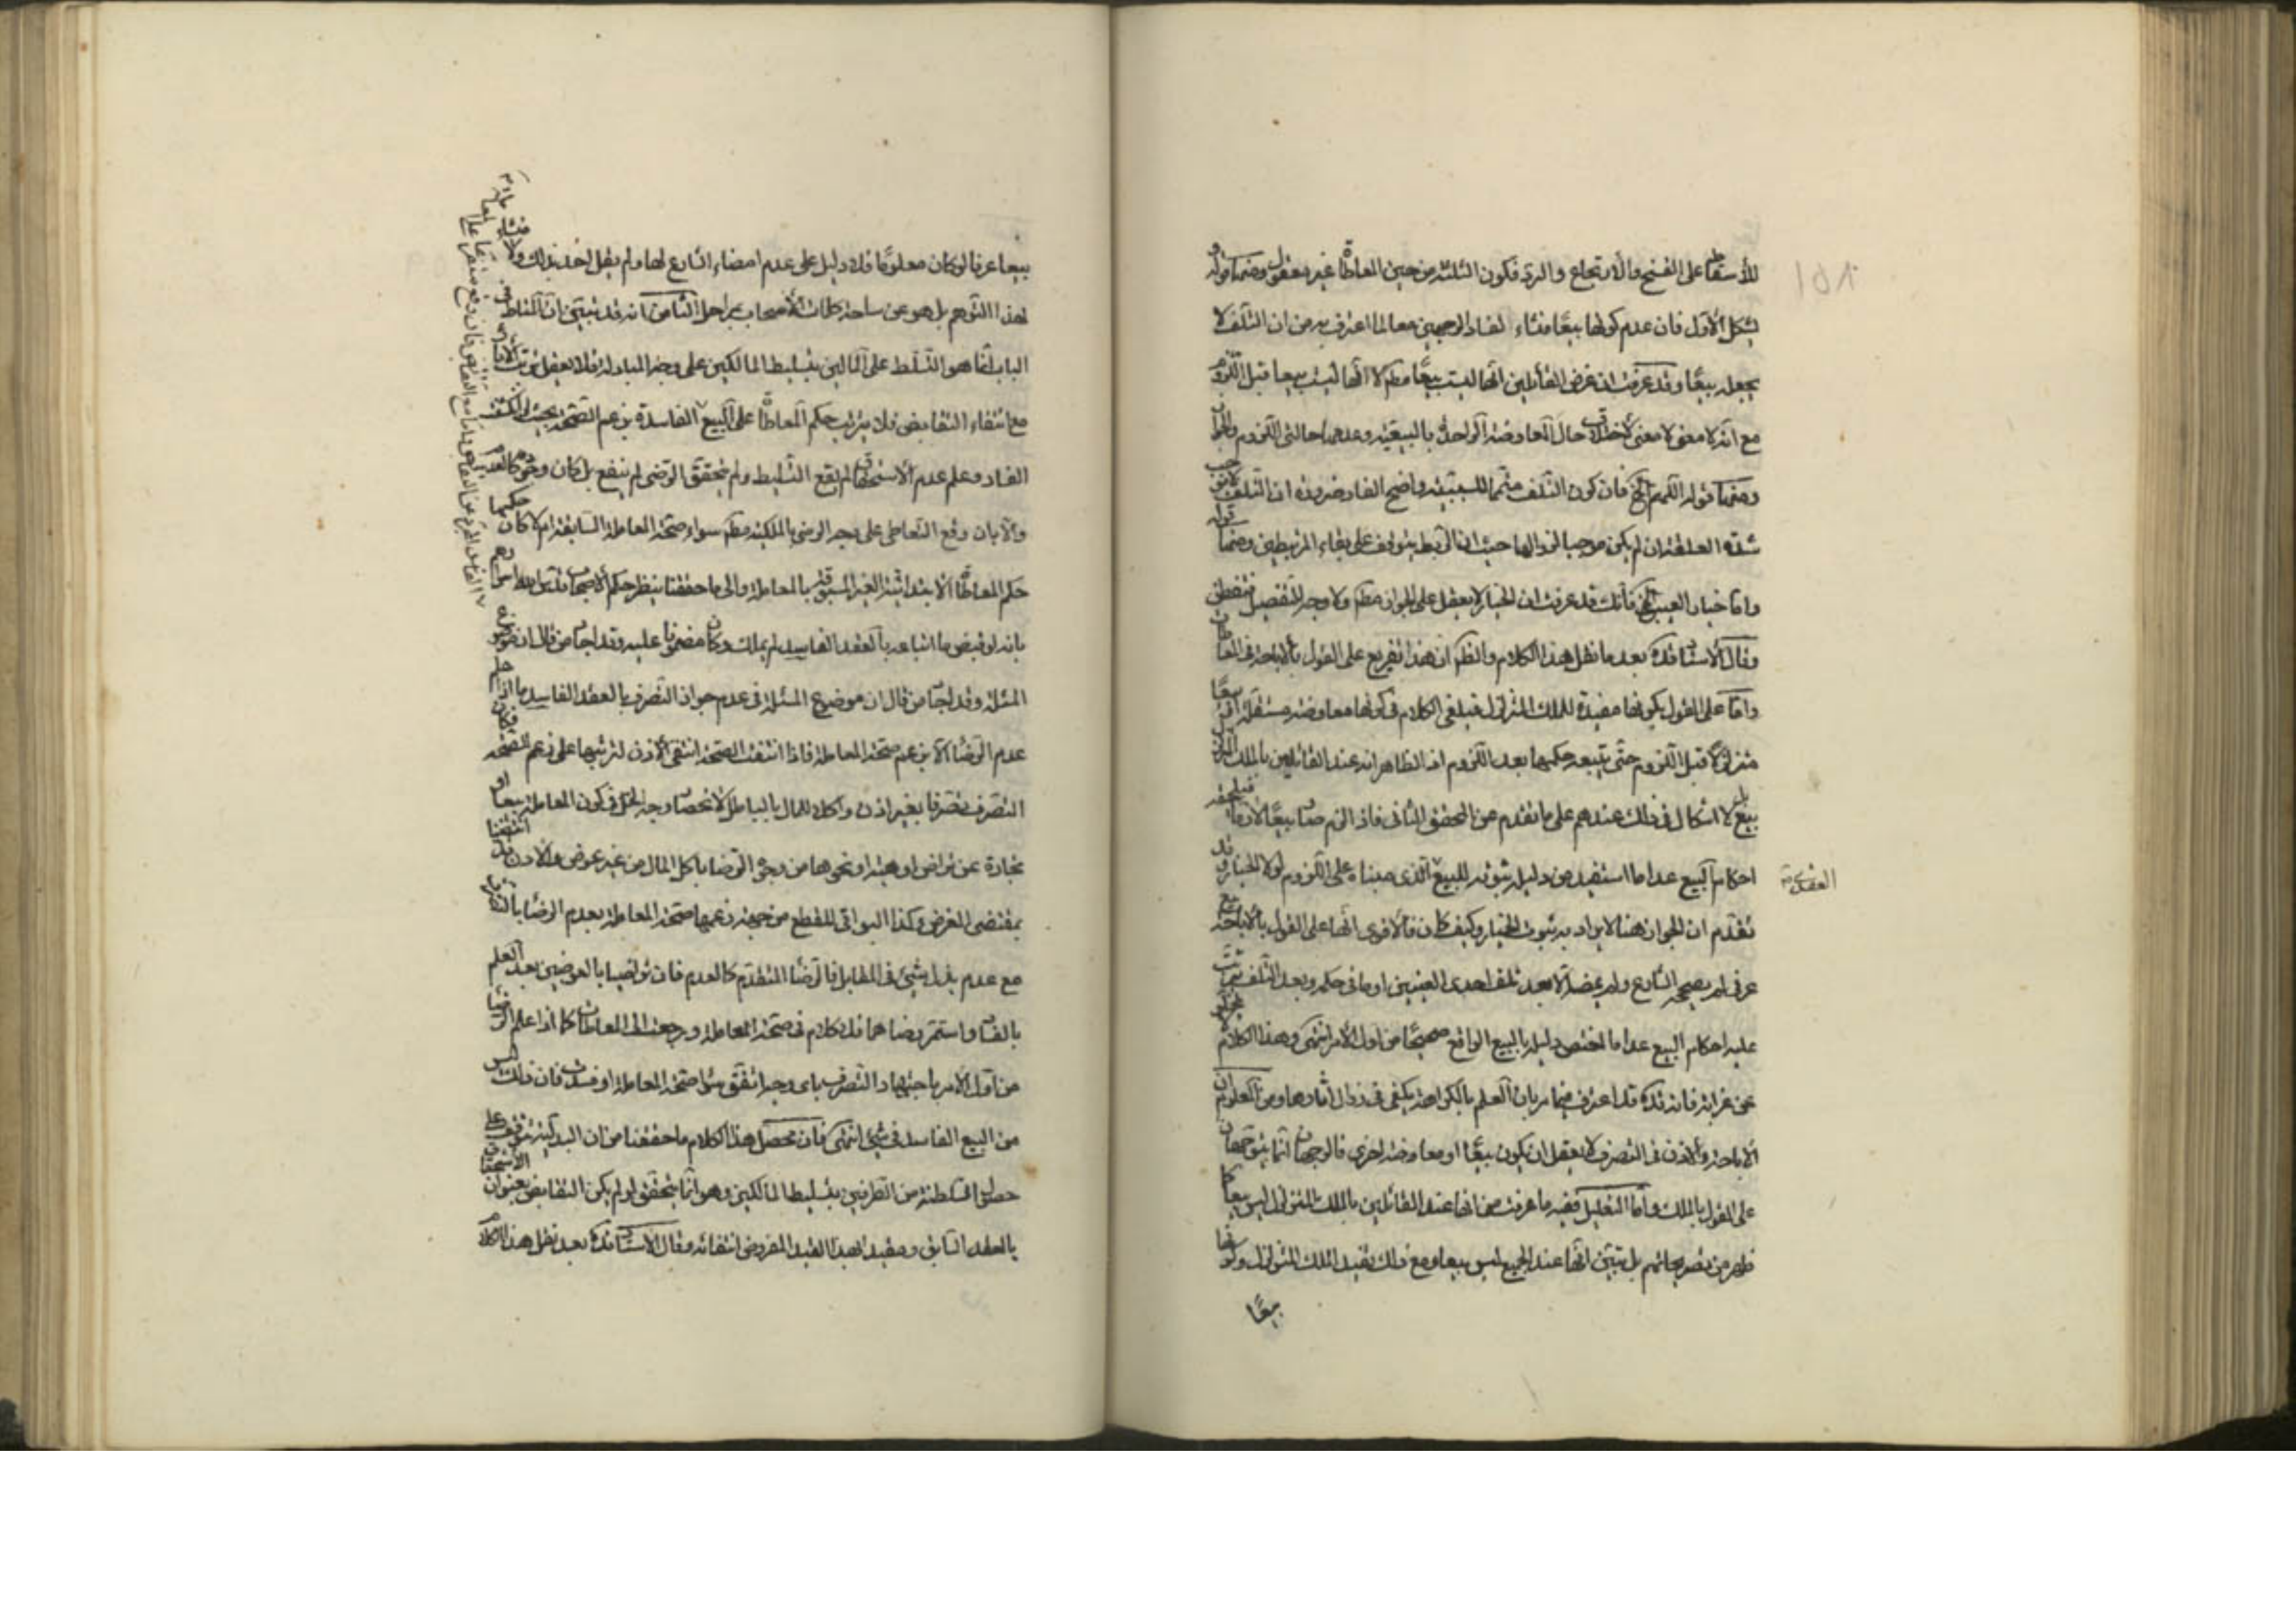 للأسقاط على الفسخ والارتجاع والرد فكون الثلثة من حين المعاطاة غير معقول ومنها قوله و
يشكل الأول فان عدم كونها بيعًا منشاء لفساد الوجهين معا لما اعترف به من ان التلف لا
يجعله بيعًا وقد عرفت ان غرض القائلين انها ليست بيعًا مطم لا انها ليست بيعا قبل اللزوم
مع انه لا معنى لاختلاف حال المعاوضة الواحدة بالبيعية وعدمها حالتى اللزوم والجواز
ومنها قوله اللهم الخ فان كون التلف متمما للسببية واضح الفساد ضرورة ان التلف لا يوجب
شدة العلقة ان لم يكن موجبا لزوالها حيث ان الربط يتوقف على بقاء المرتبطين ومنها قوله
واما خيار العيب الخ فانك قد عرفت ان الخيار لا يعقل على الجواز مطم ولا وجه للتفصيل
وقال الاستاد قده بعد ما نقل هذا الكلام والظم ان هذا تفريع على القول بالاباحة فى المعاطاة
واما على القول بكونها مفيدة للملك المتزلزل فيلغى الكلام فى كونها معاوضة مستقلة او بيعًا
متزلزلًا قبل اللزوم حتى يتبعه حكمها بعد اللزوم اذ الظاهر انه عند القائلين بالملك المتزلزل
بيع بل لا اشكال فى ذلك عندهم على ما تقدم عن المحقق الثانى فاذا لزم صار بيعًا لازما فيلحقه
احكام البيع عدا ما استفيد من دليله ثبوته للبيع العقدى الذى مبناه على اللزوم لولا الخيار وقد
تقدم ان الجواز هنا لا يراد به ثبوت الخيار وكيف كان فالاقوى انها على القول بالاباحة بيع
عرفى لم يصححه الشارع ولم يمضه الا بعد تلف احدى العينين او ما فى حكمه وبعد التلف يترتب
عليه احكام البيع عدا ما اختص دليله بالبيع الواقع صحيحًا من اول الأمر انتهى وهذا الكلام
عن غرابة فانه قده قد اعترف فيما مر بان العلم بالكراهة يكفى فى زوال آثارها ومن المعلوم ان
الاباحة والاذن فى التصرف لا يعقل ان يكون بيعًا او معاوضة اخرى فالوجهان انما يتوجهان
على القول بالملك واما التعليل ففيه ما عرفت من انها عند القائلين بالملك المتزلزل ليس بيعا كما
ظهر من تصريحاتهم بل تبين انها عند الجميع ليس بيعا ومع ذلك يفيد الملك المتزلزل وكونها
بيعًا
بيعا عرفا لو كان معلومًا فلا دليل على عدم امضاء الشارع لها ولم يقل احد بذلك ولا منشاء
لهذا التوهم بل هو عن ساحة كلمات الأصحاب بمراحل الثامن انه قد تبين ان المناط فى
الباب انما هو التسلط على المالين بتسليط المالكين على وجه المبادلة فلا يعقل ترتب الاثار
مع انتفاء التقابض فلا يترتب حكم المعاطاة على البيع الفاسدة بزعم الصحة بحيث لو انكشف
الفساد وعلم عدم الاستحقاق لم يقع التسليط ولم يتحقق الرضى لم ينفع بل كان وجوده كالعدم
والا بان وقع التعاطى على وجه الرضى بالملكية مطم سواء صحة المعاملة السابقة ام لا كان حكمها
حكم المعاطاة الابتدائية الغير المسبوقة بالمعاملة والى ما حققنا ينظر حكم الاصحاب
بانه لو قبض ما ابتاعه بالعقد الفاسد لم يملك وكان مضمونا عليه وقد اجاد من قال ان
المسئلة وقد اجاد من قال ان موضوع المسئلة فى عدم جواز التصرف بالعقد الفاسد ما اذا علم
عدم الرضا الا بزعم صحة المعاملة فاذا انتفت الصحة انتفى الاذن لترتبها على زعم الصحة فكان
التصرف تصرفا بغير اذن واكلا للمال بالباطل لانحصار وجه الحل فى كون المعاملة بيعا او
تجارة عن تراض او هبة او نحوها من وجوه الرضا باكل المال من غير عوض والاولان قد انتفيا
بمقتضى الفرض وكذا البواقى للقطع من جهة زعمهما صحة المعاملة بعدم الرضا بالتصرف
مع عدم بذل شىء فى المقابل فالرضا المتقدم كالعدم فان تراضيا بالعوضين بعد العلم
بالفساد واستمر رضاهما فلا كلام فى صحة المعاملة ورجعت الى المعاطاة كما اذا علم الرضا
من اول الامر باباحتهما التصرف باى وجه اتفق سواء صحة المعاملة او فسدت فان ذلك ليس
من البيع الفاسد فى شىء انتهى فان محصل هذا الكلام ما حققنا من ان البدلية تتوقف على
حصول السلطنة من الطرفين بتسليط المالكين وهو انما يتحقق لو لم يكن التقابض بعنوان الاستحقاق
بالعقد السابق ومقيد لهذا القيد المفروض انتفائه وقال الاستاد قده بعد نقل هذا الكلام